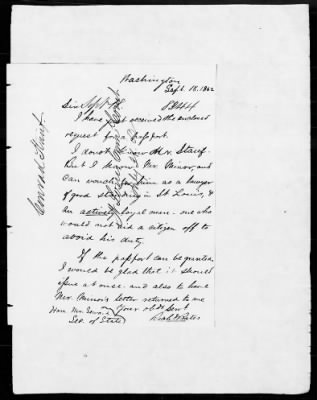 Washington
Sept. 18. 1862
Sir
I have just received the enclosed
request for a passport.
I do not know Mr Stauf.
But I know Mr. Minor, and
can vouch for him as a lawyer
of good standing in St Louis, &
an actively loyal man - one who
would not aid a citizen off to
avoid his duty.
If the passport can be granted
I would be glad that it should
issue at once - and also to have
Mr. Minor's letter returned to me
Your obdt servt
Hon. Wm. Seward
Sec. of State
Conrad Stauf